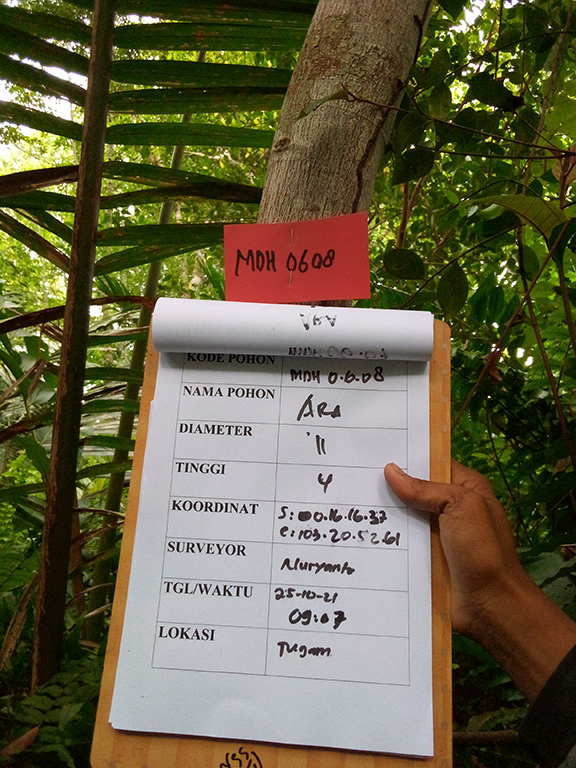 MDH 0608
KODE POHON MDH 0.6.08
NAMA POHON ARA
DIAMETER 11
TINGGI 4
KOORDINAT S: 00.16.16.37
E: 103.20.52.61
SURVEYOR Nuryanto
TGL/WAKTU 25-10-21
09:07
LOKASI Tugam